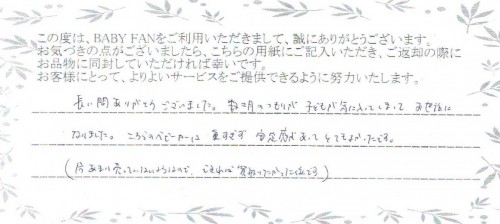 この度は、BABY FANをご利用いただきまして、誠にありがとうございます。
お気づきの点がございましたら、こちらの用紙にご記入いただき、ご返却の際に
お品物に同封していただければ幸いです。
お客様にとって、よりよいサービスをご提供できるように努力いたします。
長い間ありがとうございました。数ヶ月のつもりが 子どもが気に入ってしまって お世話に
なりました。こちらのベビーカーは 重すぎず 安定感があって とてもよかったです。
(今あまり売っていないようなので、できれば 買取りたかった です)